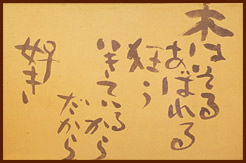 木はいかる
あばれる
狂う
いきているから
だから
好き